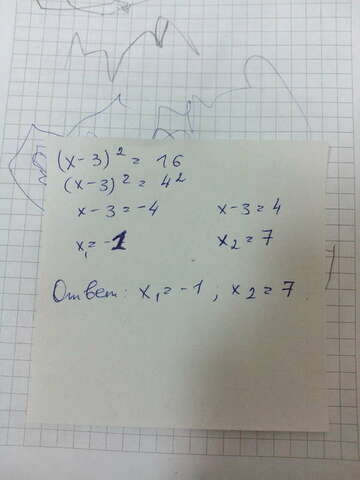 (x-3)² = 16
(x-3)² = 4²
x-3=-4 x-3=4
x₁=-1 x₂=7
Ответ: x₁=-1; x₂=7.